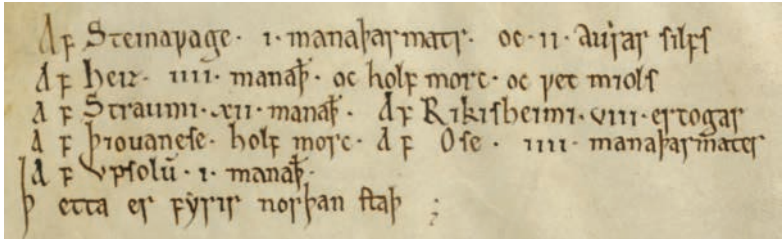 Af Steinavage · ı · manaþarmatr · oc · ıı · aurar silfs
Af heır · ıııı · manaþ · oc holf morc · oc vet miols
Af Straumi · xıı · manaþ · Af Rikisheimi · vııı · ertogar
Af þiouanese · holf morc · Af Ose · ıııı · manaþarmater
Af Vpsolū · ı · manaþ ·
þetta er fyrir norþan staþ ;